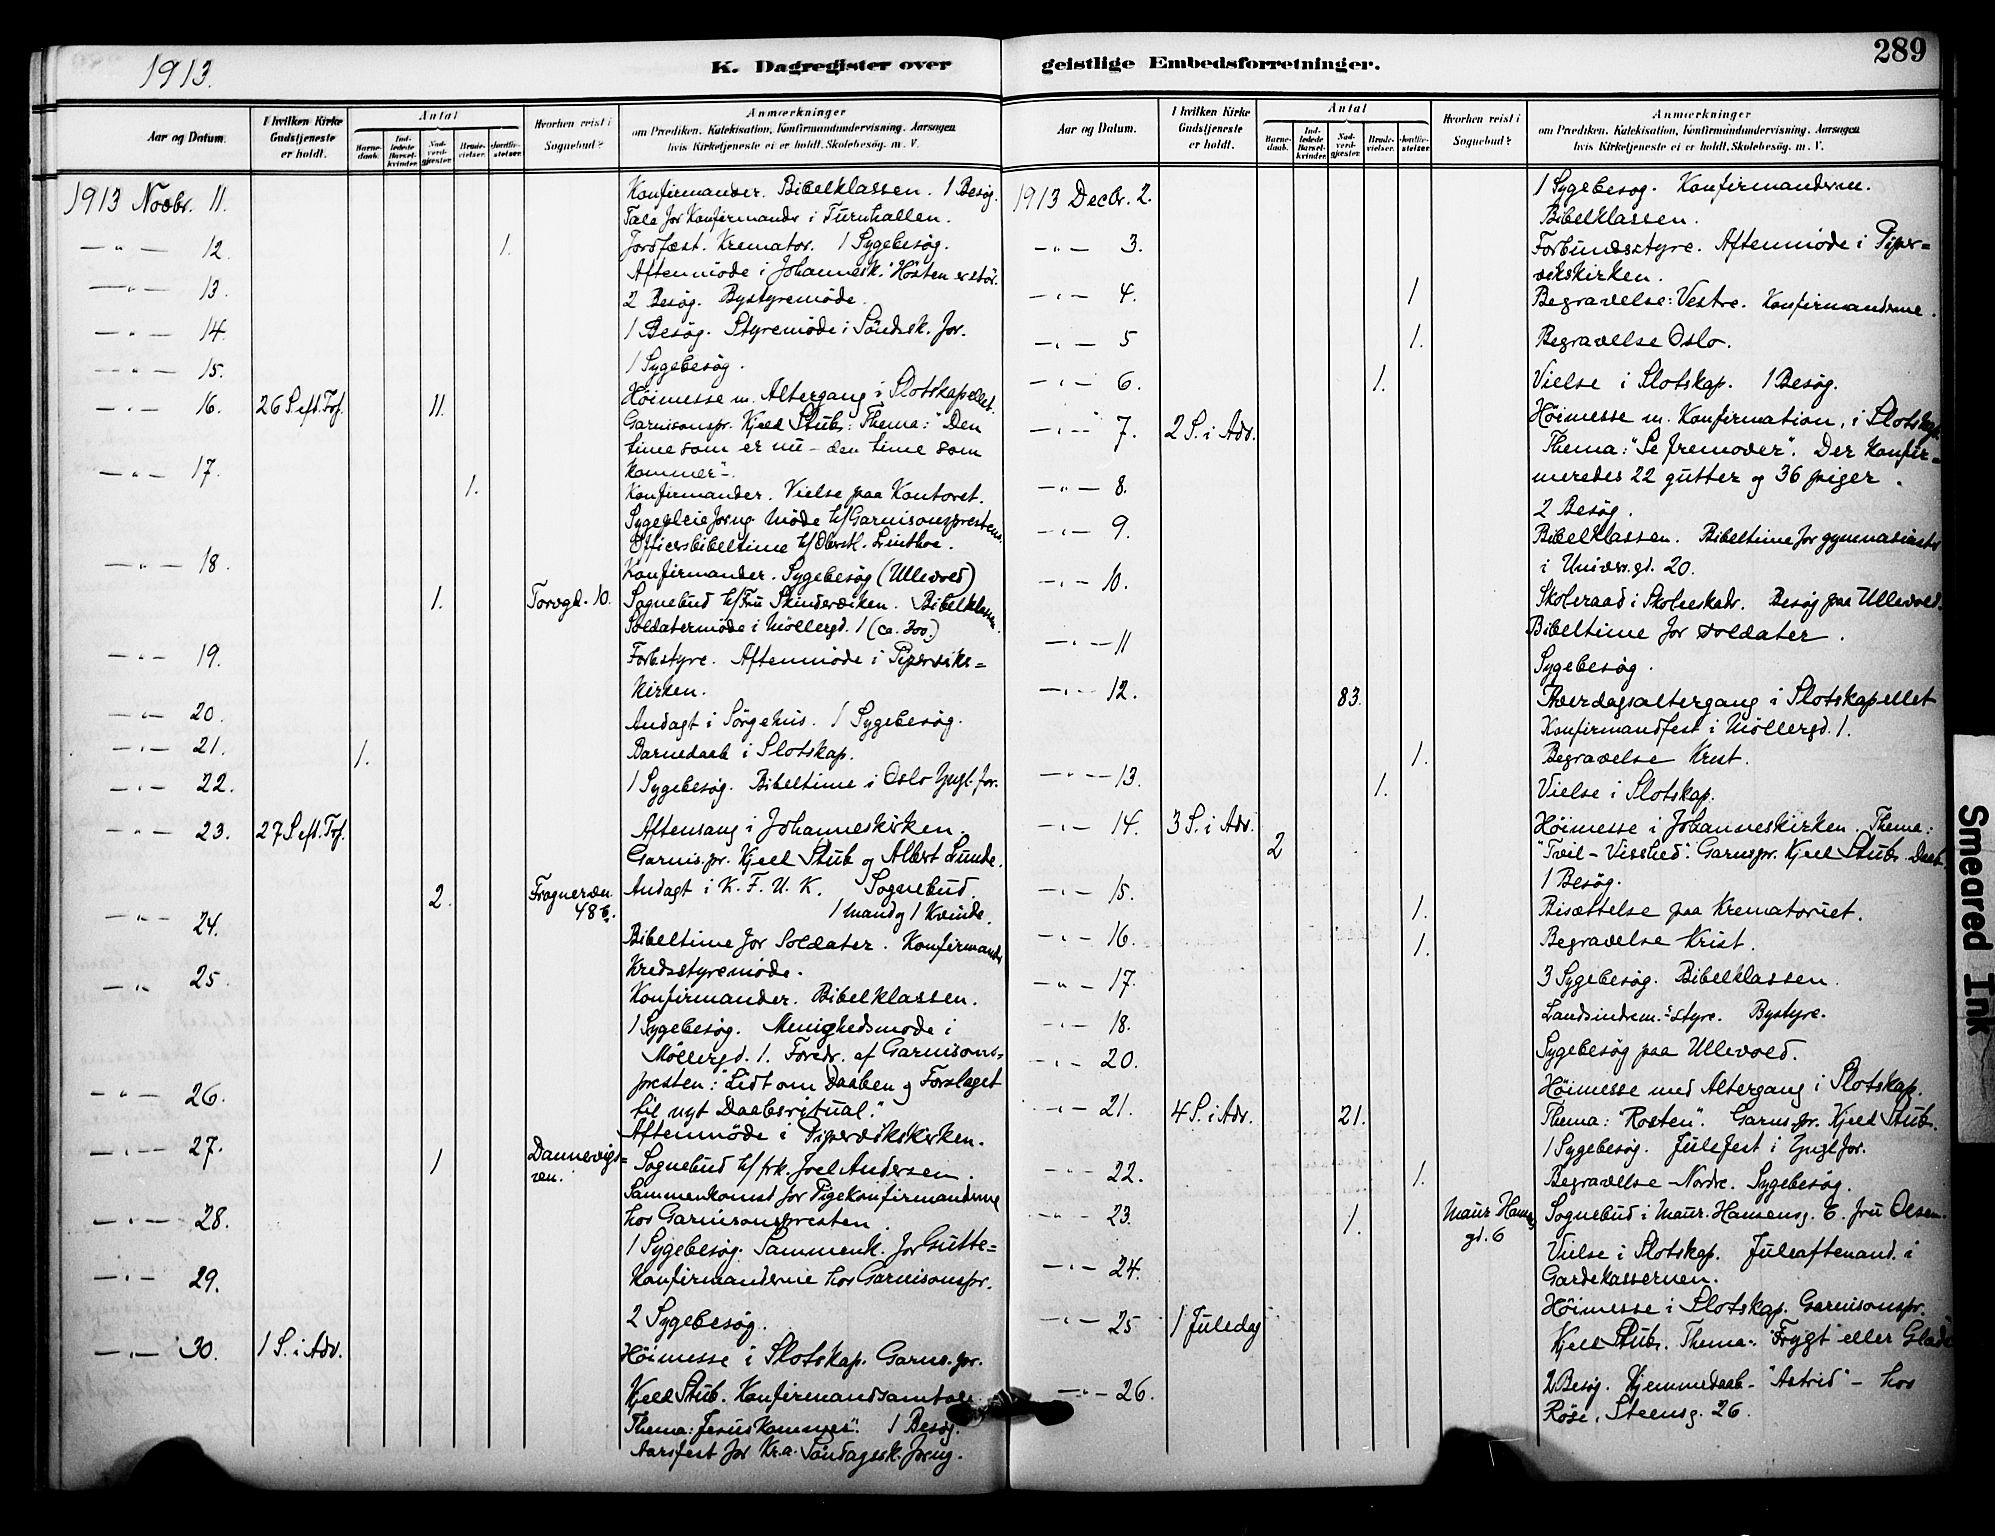 289
1913.
K. Dagregister over geistlige Embedsforretninger.
Aar og Datum.
I hvilken Kirke Gudstjeneste er holdt.
Antal
Barnedaab.
Indledede Barselkvinder.
Nadverdgjester.
Brudevielser.
Jordfæstelser.
Hvorhen reist i Sognebud?
Anmærkninger
om Prædiken. Katekisation, Konfirmandundervisning. Aarsagen
hvis Kirketjeneste ei er holdt. Skolebesøg. m. V.
1913 Novbr. 11. Konfirmander. Bibelklassen. 1 Besøg.
Tale for Konfirmander i Turnhallen.
— " — 12. 1. Jordfæst. Kremator. 1 Sygebesøg.
Aftenmøde i Johannesk. "Høsten er stor.
— " — 13. 2 Besøg. Bystyremøde.
— " — 14. 1 Besøg. Styremøde i Søndsk. for.
— " — 15. 1 Sygebesøg.
— " — 16. 26 S eft. Tref. 11. Høimesse m. Altergang i Slotskapellet.
Garnisonspr. Kjeld Stub: Thema: "Den
time som er nu – den time som
kommer".
— " — 17. 1. Konfirmander. Vielse paa Kontoret.
Sygepleieforng. Møde h/Garnisonsprestens.
Officersbibeltime h/Oberstl. Linthoe.
— " — 18. Konfirmander. Sygebesøg (Ullevold)
1. Torvgd. 10. Sognebud h/Fru Skinderviken. Bibelklassen.
Soldatermøde i Møllergd. 1 (ca. 300.)
— " — 19. Forbstyre. Aftenmøde i Piperviks=
kirken.
— " — 20. Andagt i Sørgehus. 1 Sygebesøg.
— " — 21. 1. Barnedaab i Slotskap.
— " — 22. 1 Sygebesøg. Bibeltime i Oslo Yngl. for.
— " — 23. 27 S eft. Tref. Aftensang i Johanneskirken.
Garnis.pr. Kjeld Stub og Albert Lunde.
2. Fragnerven 48 b. Andagt i K. F. U. K. Sognebud.
1 Mand og 1 Kvinde.
— " — 24. Bibeltime for Soldater. Konfirmander
Kredsstyremøde.
— " — 25. Konfirmander. Bibelklassen.
1 Sygebesøg. Menighedsmøde i
Møllergd. 1. Foredr. af Garnisons=
presten: "Lidt om Daaben og Forslaget
til nyt Daabsritual."
— " — 26. Aftenmøde i Pipervikskirken.
— " — 27. 1 Dannevigs=
ven. Sognebud h/frk. Joel Andersen.
Sammenkomst for Pigekonfirmanderne
hos Garnisonspresten.
— " — 28. 1 Sygebesøg. Sammenk. for Gutte=
Konfirmanderne hos Garnisonspr.
— " — 29. 2 Sygebesøg.
— " — 30. 1 S. i Adv. Høimesse i Slotskap. Garns. pr.
Kjeld Stub. Konfirmandsamtale
Thema: "Jesus kommer". 1 Besøg.
Aarsfest for Kr.a. Søndagssk. forng.
Aar og Datum.
I hvilken Kirke Gudstjeneste er holdt.
Antal
Barnedaab.
Indledede Barselkvinder.
Nadverdgjester.
Brudevielser.
Jordfæstelser.
Hvorhen reist i Sognebud?
Anmærkninger
om Prædiken. Katekisation, Konfirmandundervisning. Aarsagen
hvis Kirketjeneste ei er holdt. Skolebesøg. m. V.
1913 Decbr. 2. 1 Sygebesøg. Konfirmanderne.
Bibelklassen.
— " — 3. Forbundsstyre. Aftenmøde i Piper=
vikskirken.
— " — 4. 1 Begravelse: Vestre. Konfirmanderne.
— " — 5 1. Begravelse Oslo.
— " — 6. 1. Vielse i Slotskap. 1 Besøg.
— " — 7. 2 S. i Adv. Høimesse m. Konfirmation, i Slotskap.
Thema: "Se fremover". Der konfir=
meredes 22 gutter og 36 piger.
— " — 8. 2 Besøg.
— " — 9. Bibelklassen. Bibeltime for gymnasiaster
i Univers.gd. 20.
— " — 10. Skoleraad i Skoleskadr. Besøg paa Ullevold.
Bibeltime for soldater.
— " — 11 Sygebesøg.
— " — 12. 83. Hverdagsaltergang i Slotskapellet
Konfirmandfest i Møllergd. 1.
1. Begravelse Krist.
— " — 13. 1. Vielse i Slotskap.
— " — 14. 3 S. i Adv. 2 Høimesse i Johanneskirken. Thema:
"Tvil – Visshed". Garns.pr. Kjeld Stub. Daab.
— " — 15. 1 Besøg.
1. Bisættelse paa Krematoriet.
— " — 16. 1. Begravelse Krist.
— " — 17. 3 Sygebesøg. Bibelklassen.
— " — 18. Landsindrem.=styre. Bystyre.
— " — 20. Sygebesøg paa Ullevold.
— " — 21. 4 S. i Adv. 21. Høimesse med Altergang i Slotskap.
Thema: "Røsten". Garns.pr. Kjeld Stub.
1 Sygebesøg. Julefest i Yngl.for.
— " — 22. 1. Begravelse – Nordre. Sygebesøg.
— " — 23. 1. Maur. Hansens
gd. 6 Sognebud i Maur. Hansensg. 6. fru Olsen.
— " — 24. Vielse i Slotskap. Juleaftenand. i
Gardekassernen.
— " — 25 1 Juledag Høimesse i Slotskap. Garnisonspr.
Kjeld Stub. Thema: "Frygt eller Glæde
— " — 26. 2 Besøg. Hjemmedaab – "Astrid" – hos
Røse, Steensg. 26.
Smeared Ink